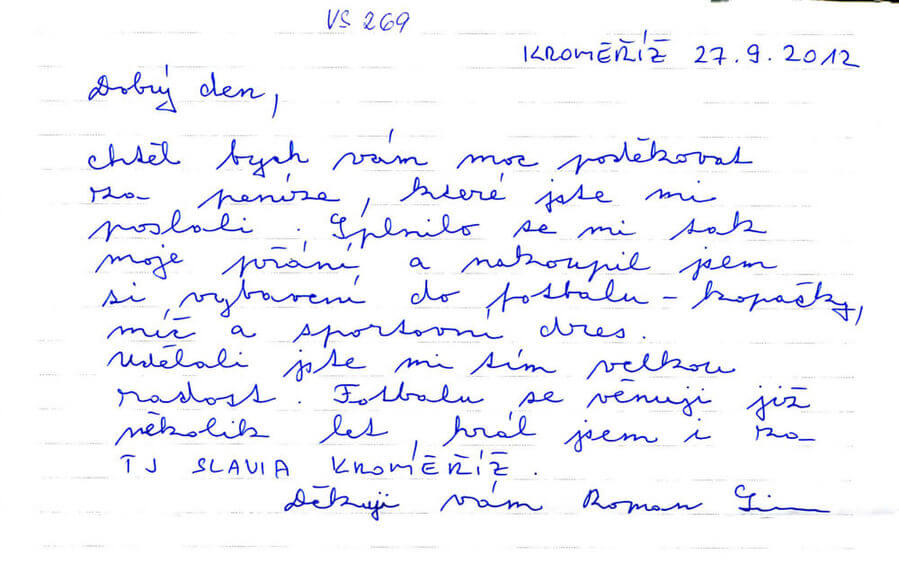 VS 269
KROMĚŘÍŽ 27.9.2012
Dobrý den,
chtěl bych vám moc poděkovat
za peníze, které jste mi
poslali. Splnilo se mi tak
moje přání, a nakoupil jsem
si vybavení do fotbalu - kopačky,
míč a sportovní dres.
Udělali jste mi tím velkou
radost. Fotbalu se věnuji již
několik let, hrál jsem i za
TJ SLAVIA KROMĚŘÍŽ.
Děkuji vám Roman